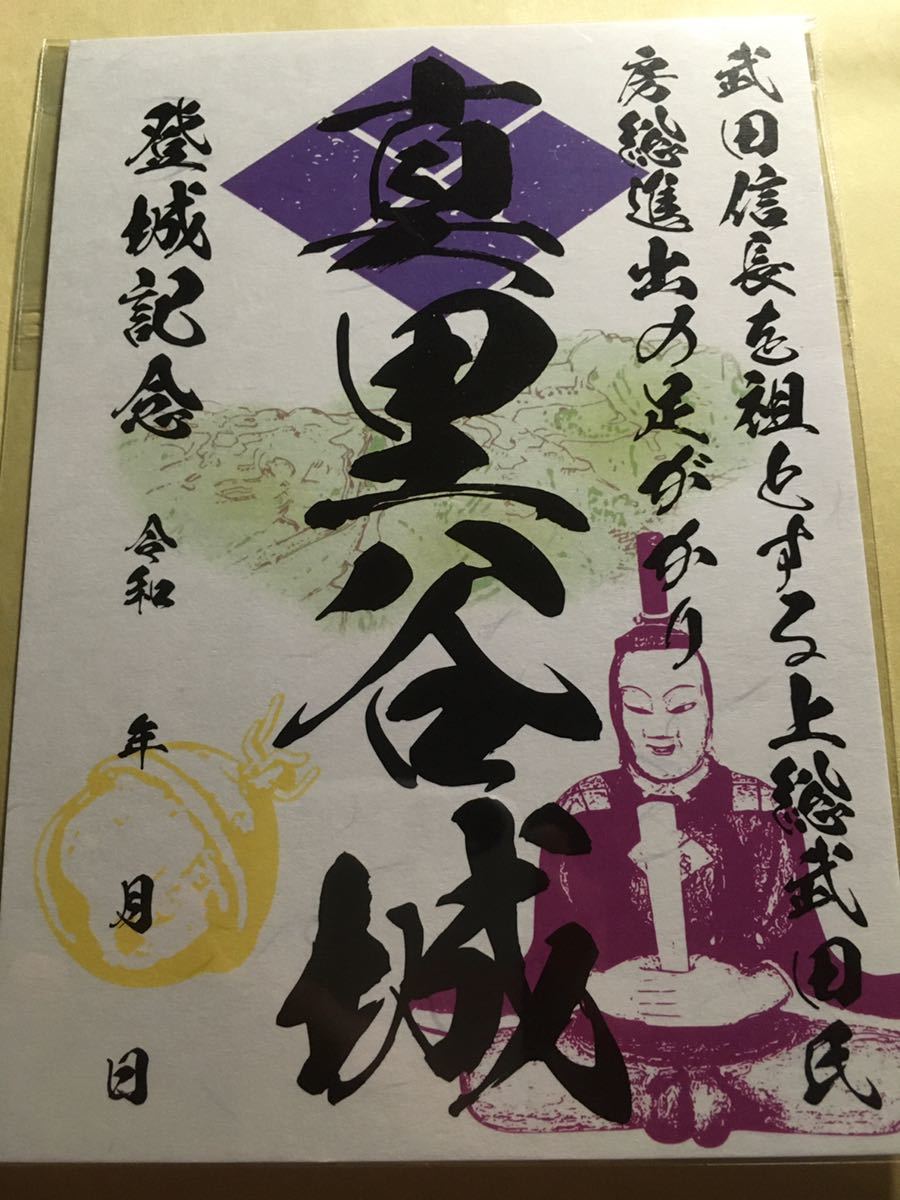 武田信長を祖とする上総武田氏
房総進出の足がかり
真里谷城
登城記念
令和 年 月 日